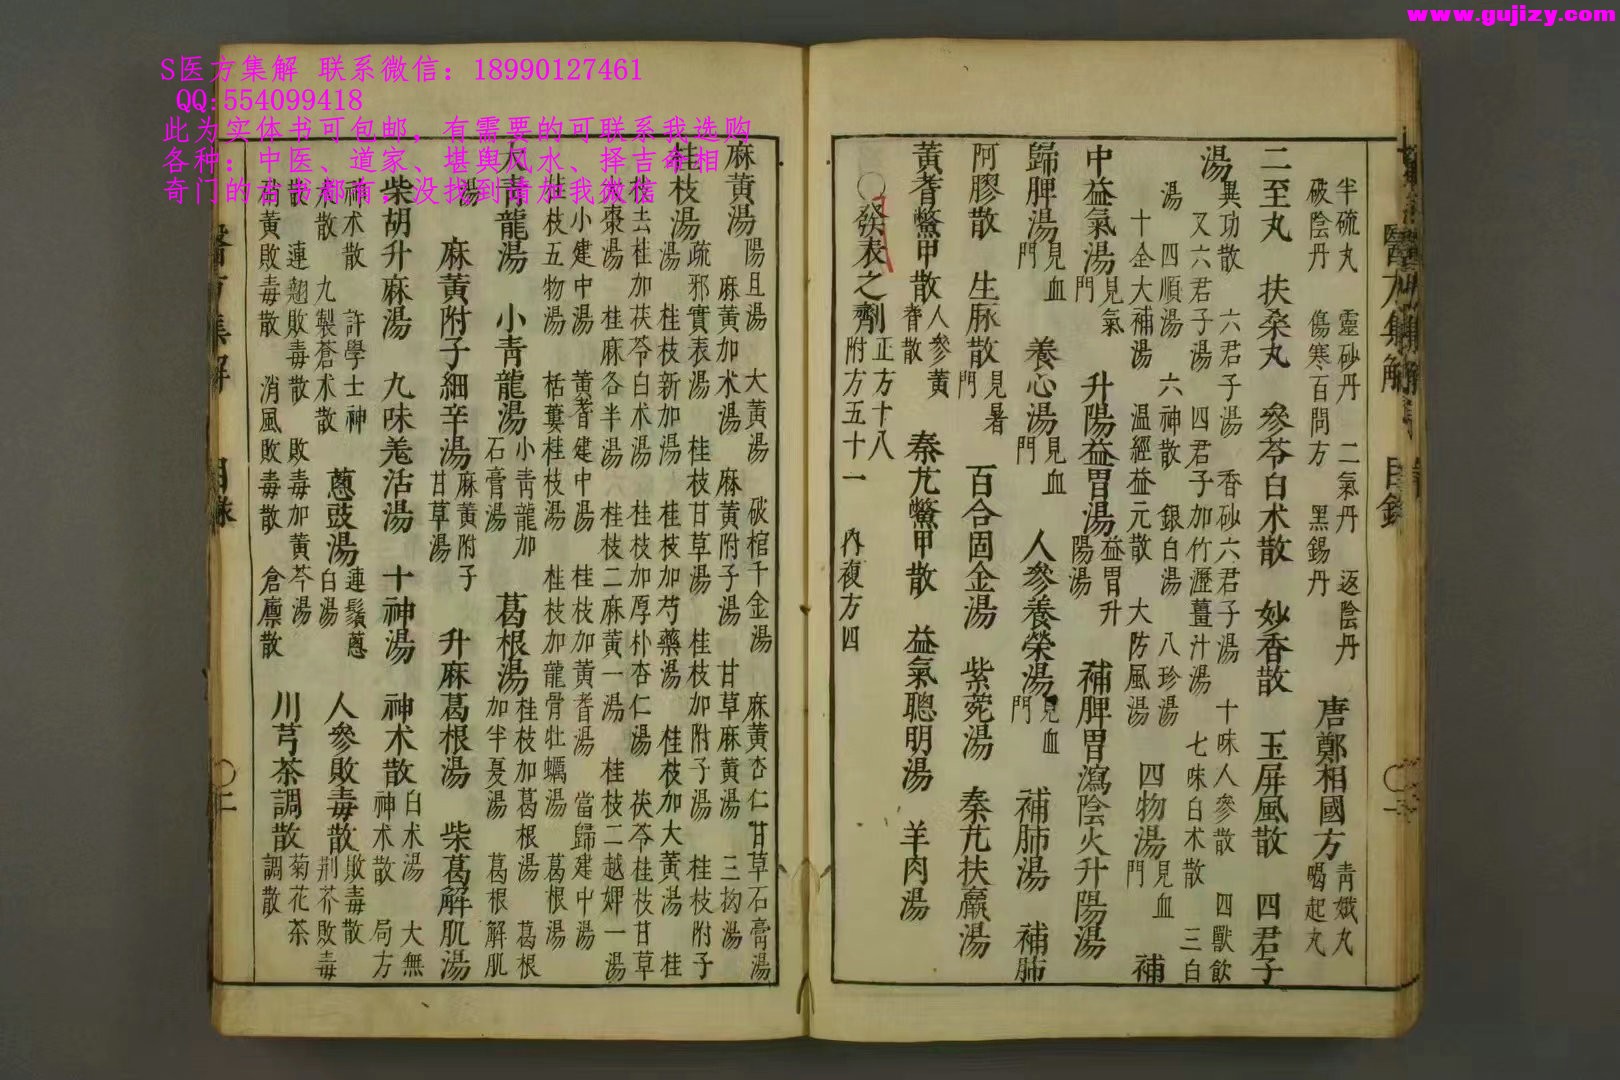 www.gujizy.com
S医方集解 联系微信：18990127461
QQ:554099418
此为实体书可包邮，有需要的可联系我选购
各种：中医、道家、堪舆风水、择吉命相
奇门的古书都有，没找到请加我微信
半硫丸 靈砂丹 二氣丹 返陰丹
破陰丹 傷寒百問方 黑錫丹
唐鄭相國方
青娥丸
喝起丸
二至丸 扶桑丸 參苓白术散 妙香散 玉屏風散 四君子
湯
異功散 六君子湯 香砂六君子湯 十味人參散 四獸飲
又六君子湯 四君子加竹瀝薑汁湯 七味白术散 三白
湯 四順湯 六神散 銀白湯 八珍湯
十全大補湯 溫經益元散 大防風湯
四物湯
見血
門
補
中益氣湯
見氣
門
升陽益胃湯
益胃升
陽湯
補脾胃瀉陰火升陽湯
歸脾湯
見血
門
養心湯
見血
門
人參養榮湯
見血
門
補肺湯 補肺
阿膠散 生脉散
見暑
門
百合固金湯 紫菀湯 秦艽扶羸湯
黃耆鱉甲散
人參黃
耆散
秦艽鱉甲散 益氣聰明湯 羊肉湯
○發表之劑
正方十八
附方五十一
內複方四
麻黃湯
陽旦湯 大黃湯 破棺千金湯 麻黃杏仁甘草石膏湯
麻黃加术湯 麻黃附子湯 甘草麻黃湯 三拗湯
桂枝湯
疏邪實表湯 桂枝甘草湯 桂枝加附子湯 桂枝附子
桂枝新加湯 桂枝加芍藥湯 桂枝加大黃湯 桂
去桂加茯苓白术湯 桂枝加厚朴杏仁湯 茯苓桂枝甘草
棗湯 桂麻各半湯 桂枝二麻黃一湯 桂枝二越婢一湯
小建中湯 黃耆建中湯 桂枝加黃耆湯 當歸建中湯
桂枝五物湯 栝蔞桂枝湯 桂枝加龍骨牡蠣湯 葛根湯
大青龍湯 小青龍湯
小青龍加
石膏湯
葛根湯
桂枝加葛根湯 葛根
加半夏湯 葛根解肌
湯
麻黃附子細辛湯
麻黃附子
甘草湯
升麻葛根湯 柴葛解肌湯
柴胡升麻湯 九味羗活湯 十神湯 神术散
白术湯 大無
神术散 局方
神术散 許學士神
术散 九製蒼术散
蔥豉湯
連鬚蔥
白湯
人參敗毒散
敗毒散
荆芥敗毒
散 連翹敗毒散 敗毒加黃芩湯
黃敗毒散 消風敗毒散 倉廪散
川芎茶調散
菊花茶
調散
醫方集解 目錄